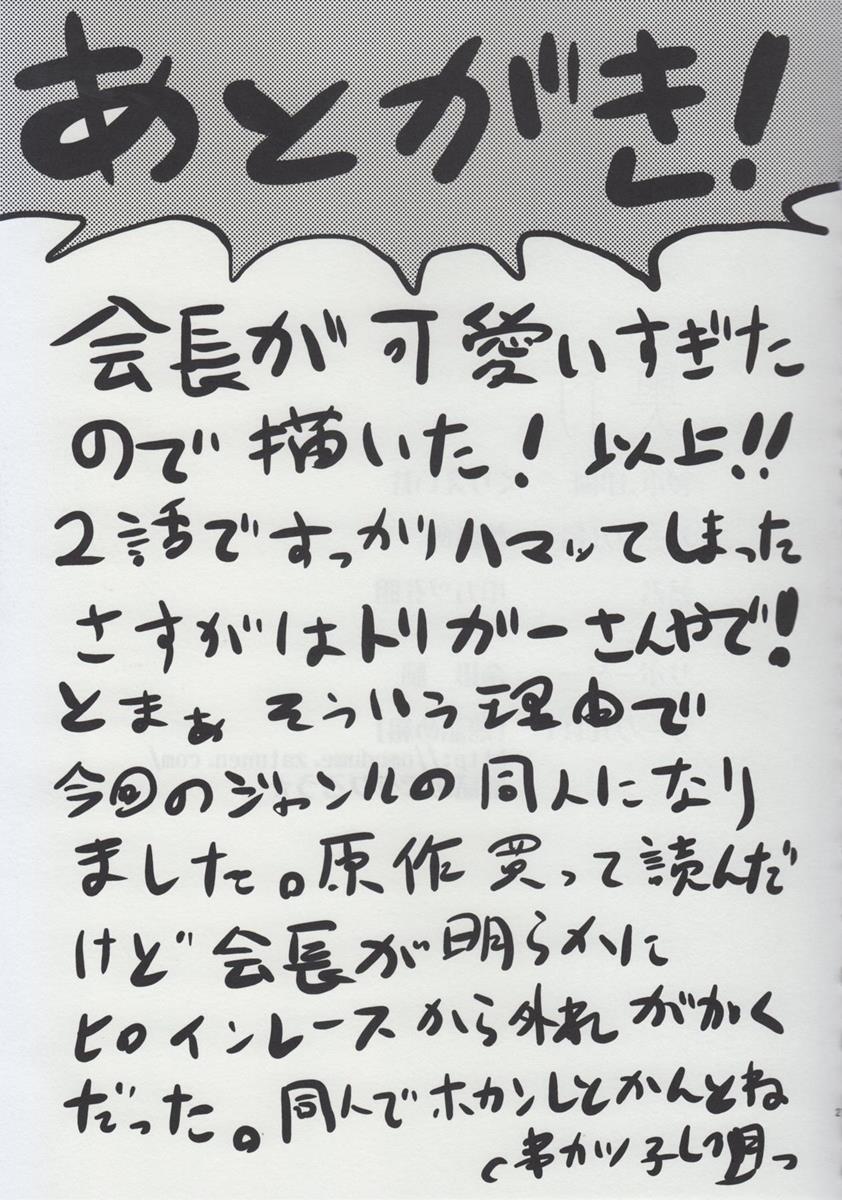 あとがき!
会長が可愛いすぎた
ので描いた! 以上!!
2話ですっかりハマッてしまった
さすがはトリガーさんやで!
とまぁそういう理由で
今回のジャンルの同人になり
ました。原作買って読んだ
けど会長が明らかに
ヒロインレースから外れががく
だった。同人でホカンしとかんとね